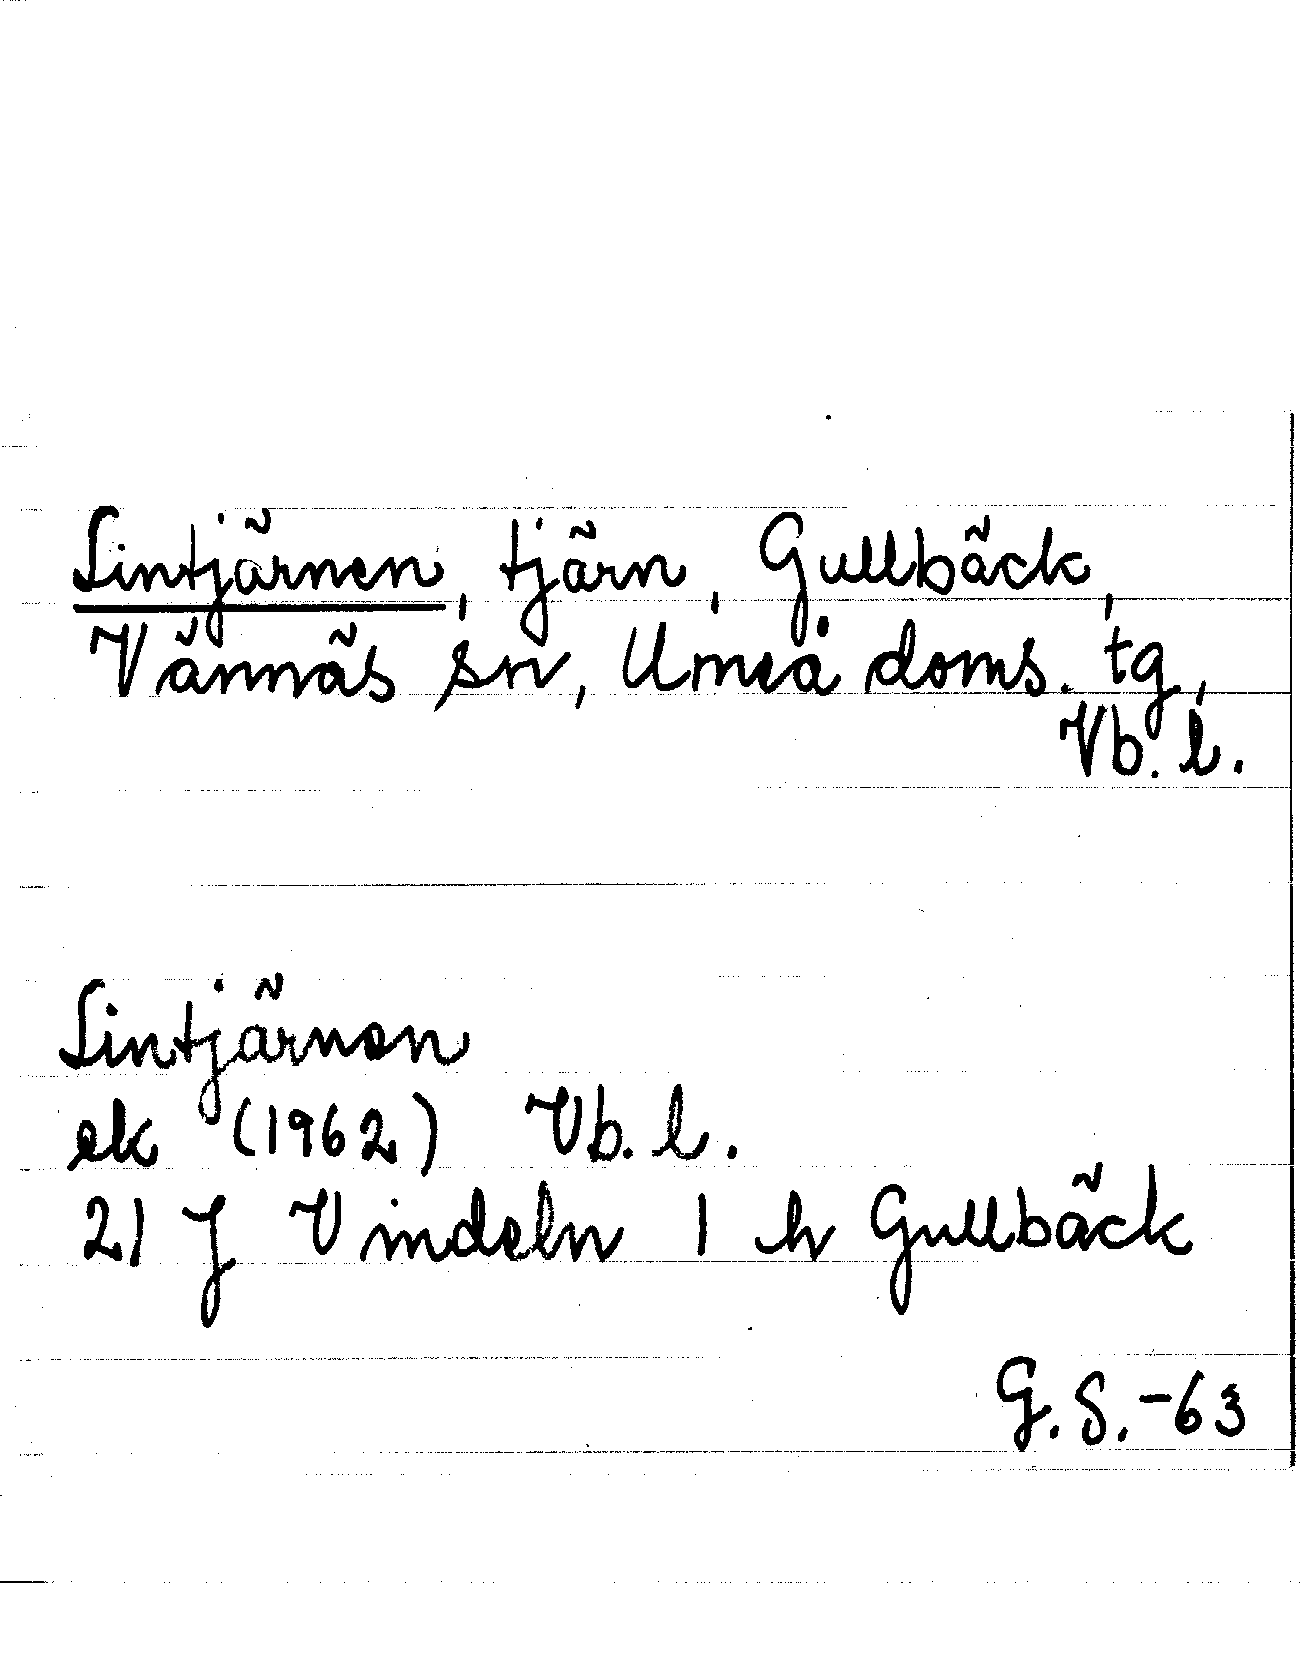 Lintjärnen, tjärn, Gullbäck,
Vännäs sn, Umeå doms. tg,
Vb. l.
Lintjärnen
ek (1962) Vb. l.
21 J Vindeln 1 h Gullbäck
G. S. -63